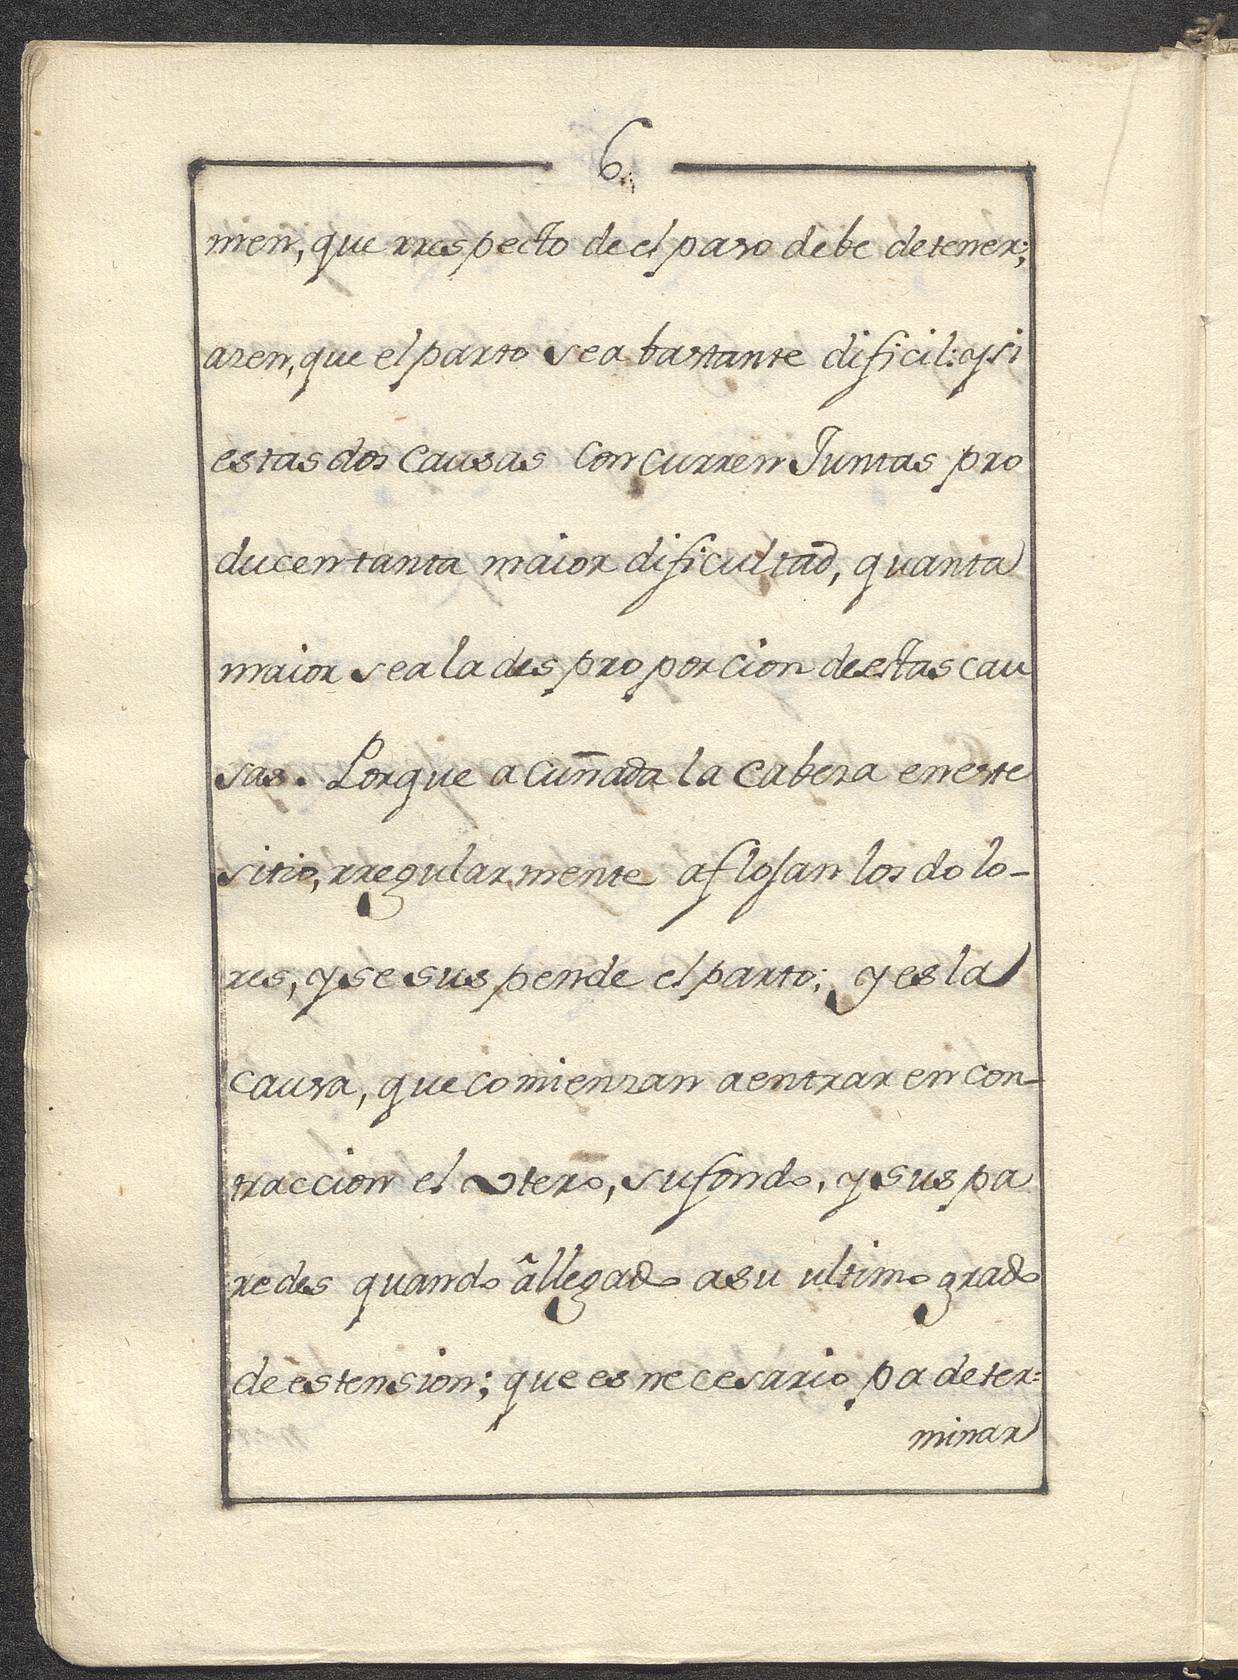 6.
men, que rrespecto de el paso debe detener;
azen, que el parto sea bastante dificil: y si
estas dos causas Concurren Juntas pro
ducen tanta maior dificultad, quanta
maior sea la desproporcion de estas cau
sas. Porque acuñada la Cabeza en este
sitio, rregularmente aflojan los dolo-
res, y se suspende el parto; y es la
causa, que comienzan a entrar en con-
traccion el Utero, su fondo, y sus pa
redes quando âllegado a su ultimo grado
de estension; que es necesario pa deter=
minar